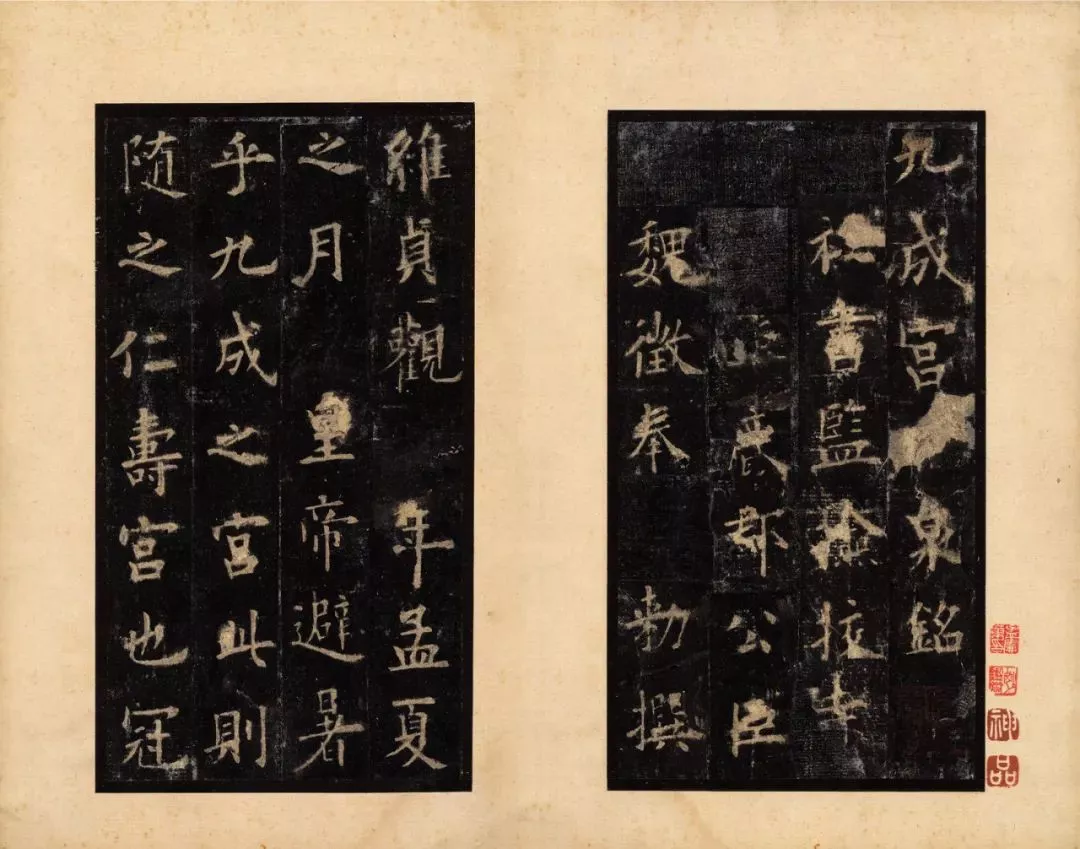 九成宮泉銘
書監檢校
鹿郡公臣
魏徵奉勑撰
維貞觀年孟夏
之月皇帝避暑
乎九成之宮此則
隨之仁壽宮也冠
神
品